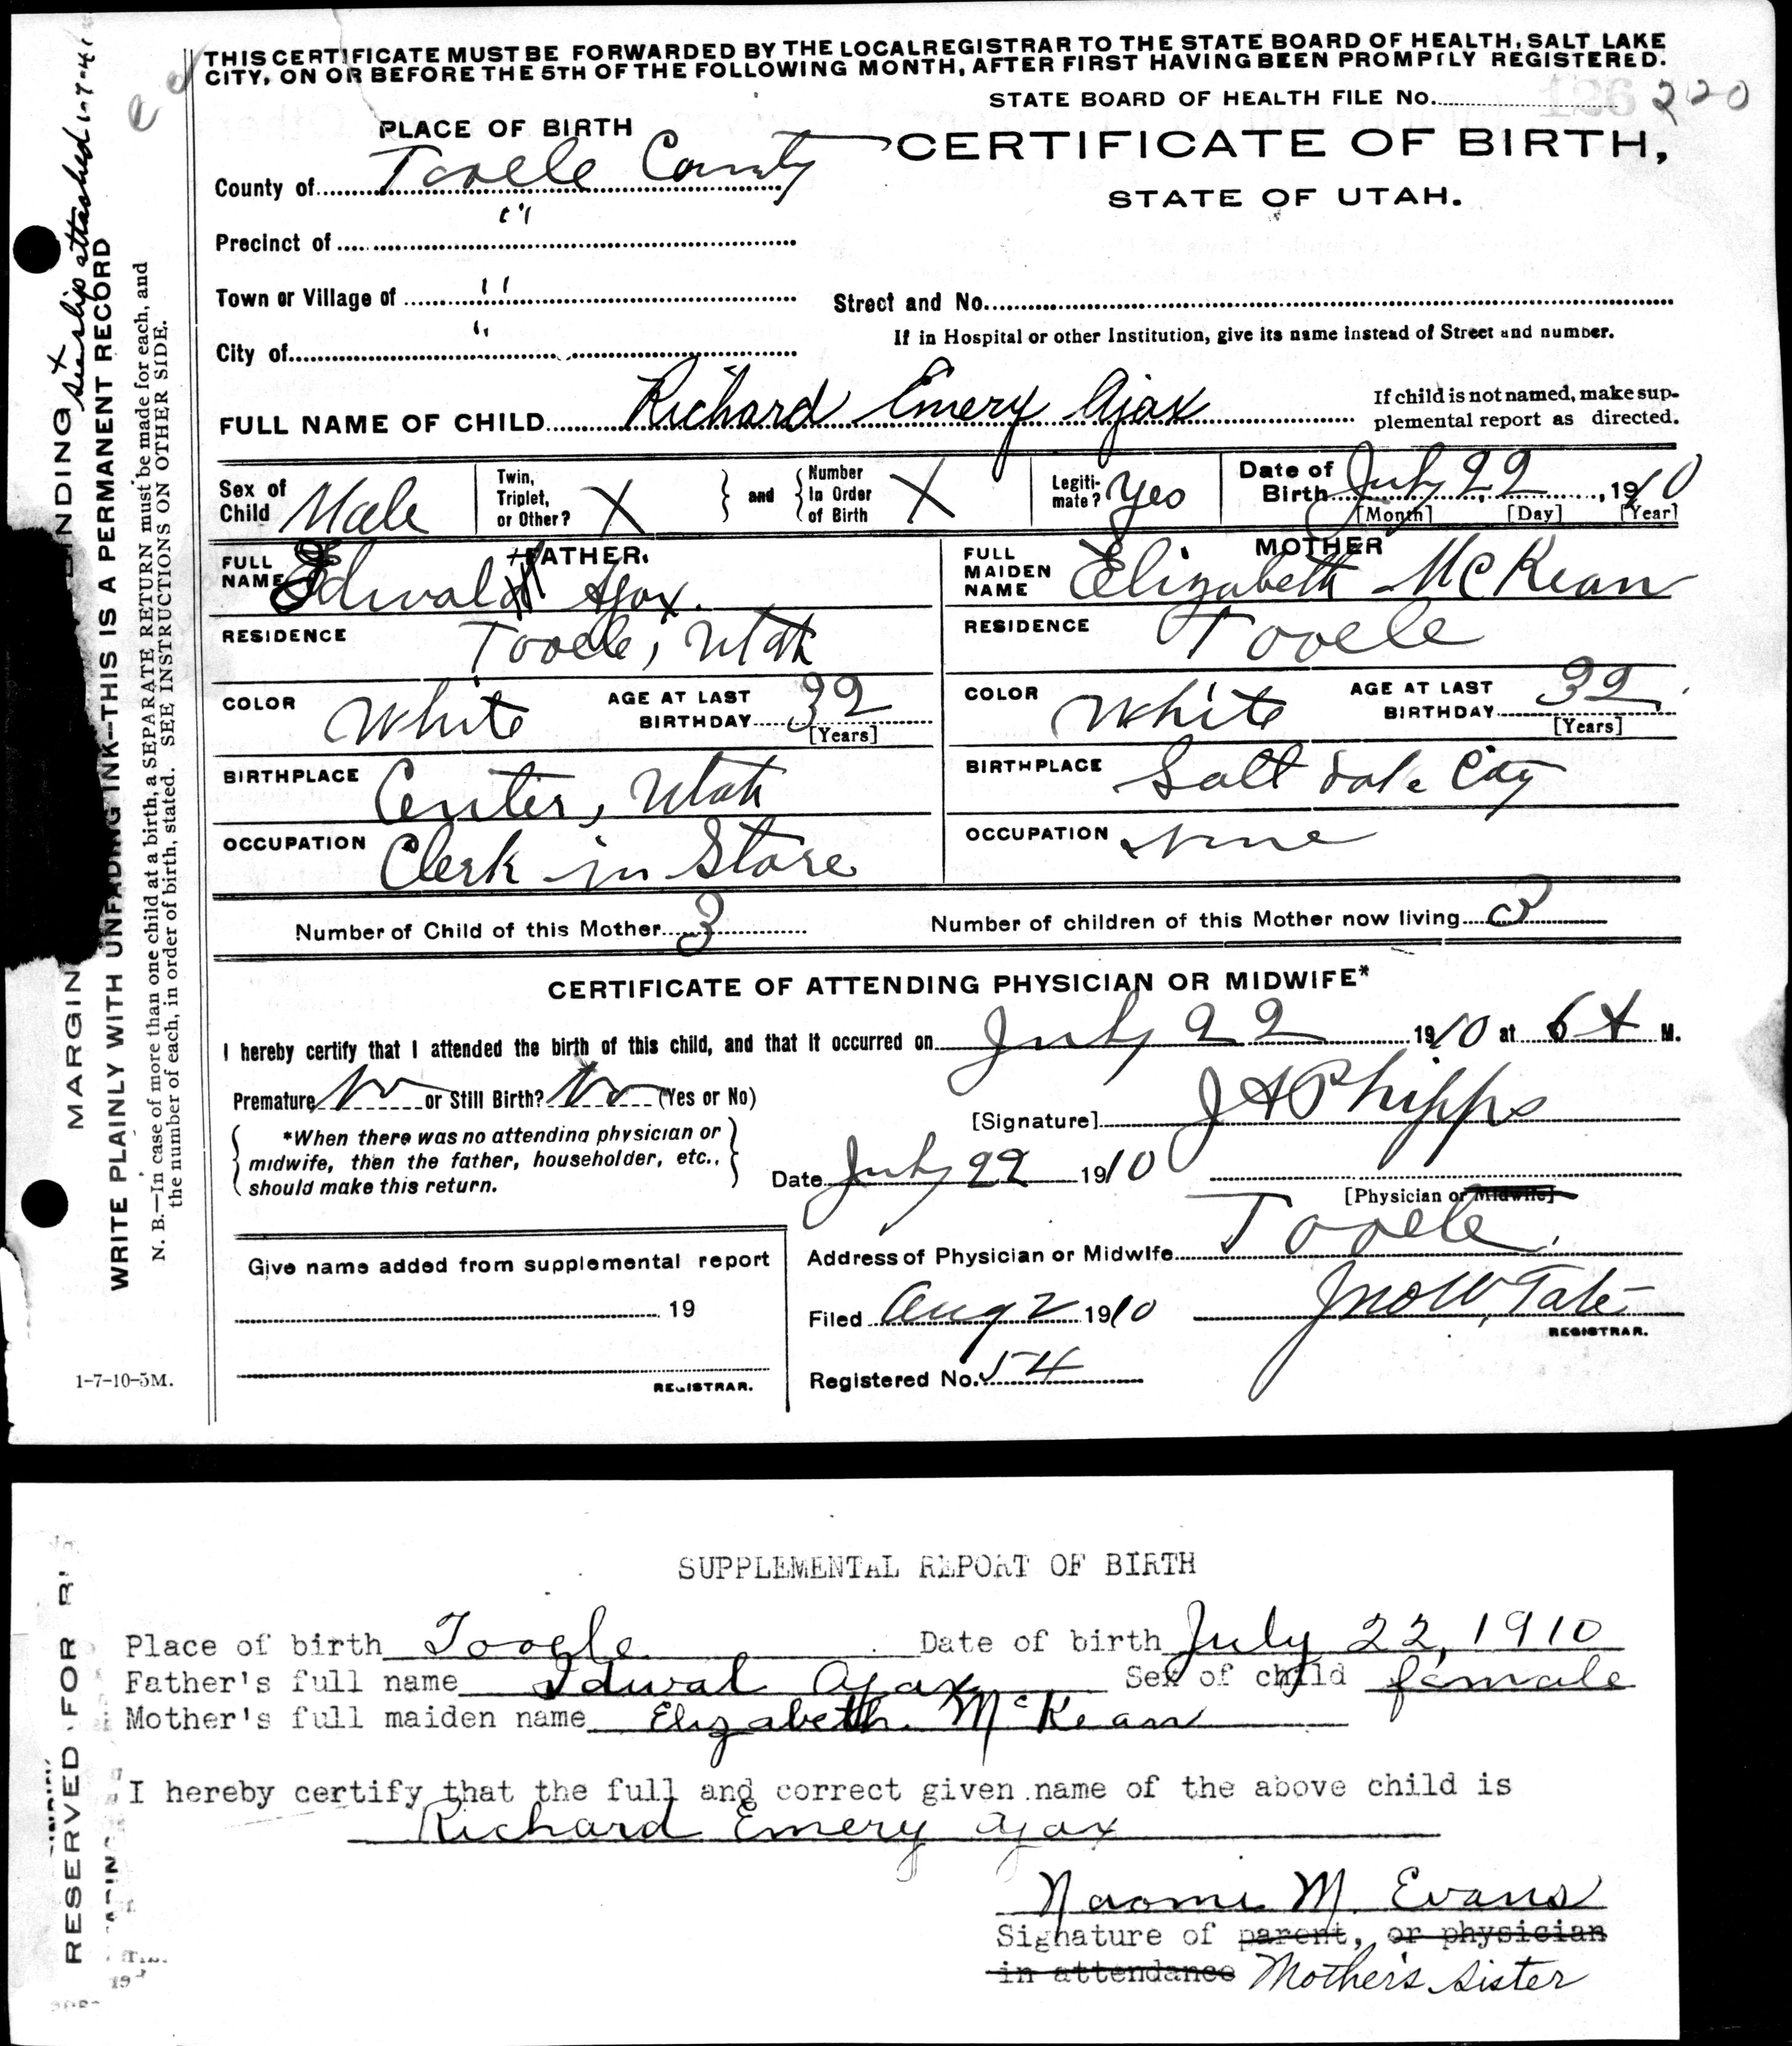 THIS CERTIFICATE MUST BE FORWARDED BY THE LOCAL REGISTRAR TO THE STATE BOARD OF HEALTH, SALT LAKE
CITY, ON OR BEFORE THE 5TH OF THE FOLLOWING MONTH, AFTER FIRST HAVING BEEN PROMPTLY REGISTERED.
STATE BOARD OF HEALTH FILE No. 126 220
PLACE OF BIRTH
CERTIFICATE OF BIRTH,
County of Tooele County
STATE OF UTAH.
Precinct of "
Town or Village of "
Street and No.
If in Hospital or other Institution, give its name instead of Street and number.
City of "
FULL NAME OF CHILD Richard Emery Ajax
If child is not named, make sup-
plemental report as directed.
Sex of Child Male
Twin, Triplet, or Other? X
and
Number In Order of Birth X
Legiti-mate? Yes
Date of Birth July 22, 1910
[Month] [Day] [Year]
FATHER.
FULL NAME Edwald Ajax.
RESIDENCE Tooele, Utah
COLOR White AGE AT LAST BIRTHDAY 32 [Years]
BIRTHPLACE Center, Utah
OCCUPATION Clerk in Store
MOTHER
FULL MAIDEN NAME Elizabeth McKean
RESIDENCE Tooele
COLOR White AGE AT LAST BIRTHDAY 32 [Years]
BIRTHPLACE Salt Lake City
OCCUPATION None
Number of Child of this Mother 3 Number of children of this Mother now living 3
CERTIFICATE OF ATTENDING PHYSICIAN OR MIDWIFE*
I hereby certify that I attended the birth of this child, and that it occurred on July 22 1910 at 6 A M.
Premature No or Still Birth? No (Yes or No)
[Signature] J A Phipps
*When there was no attending physician or
midwife, then the father, householder, etc.,
should make this return.
Date July 22 1910
[Physician or Midwife]
Address of Physician or Midwife Tooele.
Give name added from supplemental report
19
REGISTRAR.
Filed Aug 2 1910 Jno W. Tate
REGISTRAR.
Registered No. 54
1-7-10-5M.
MARGIN NDING
see slip attached 1-7-41
WRITE PLAINLY WITH UNFADING INK—THIS IS A PERMANENT RECORD
N. B.—In case of more than one child at a birth, a SEPARATE RETURN must be made for each, and
the number of each, in order of birth, stated. SEE INSTRUCTIONS ON OTHER SIDE.
SUPPLEMENTAL REPORT OF BIRTH
Place of birth Tooele Date of birth July 22, 1910
Father's full name Idwal Ajax Sex of child female
Mother's full maiden name Elizabeth McKean
I hereby certify that the full and correct given name of the above child is
Richard Emery Ajax
Naomi M. Evans
Signature of parent, or physician
in attendance Mother's Sister
RESERVED FOR